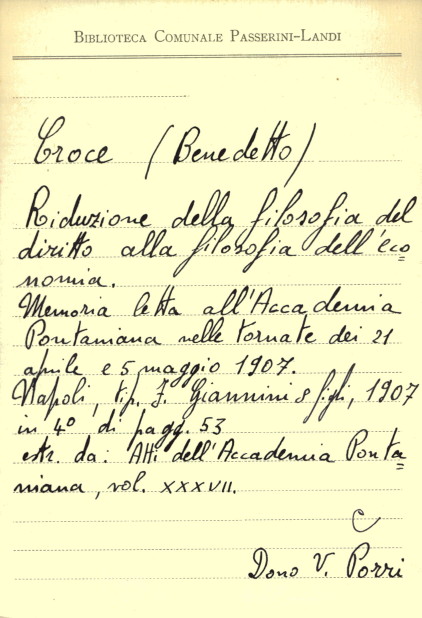 BIBLIOTECA COMUNALE PASSERINI-LANDI
Croce (Benedetto)
Riduzione della filosofia del
diritto alla filosofia dell'eco=
nomia.
Memoria letta all'Accademia
Pontaniana nelle tornate dei 21
aprile e 5 maggio 1907.
Napoli, tip. F. Giannini e figli, 1907
in 4º di pagg. 53
estr. da: Atti dell'Accademia Ponta=
niana, vol. XXXVII.
C
Dono V. Porri